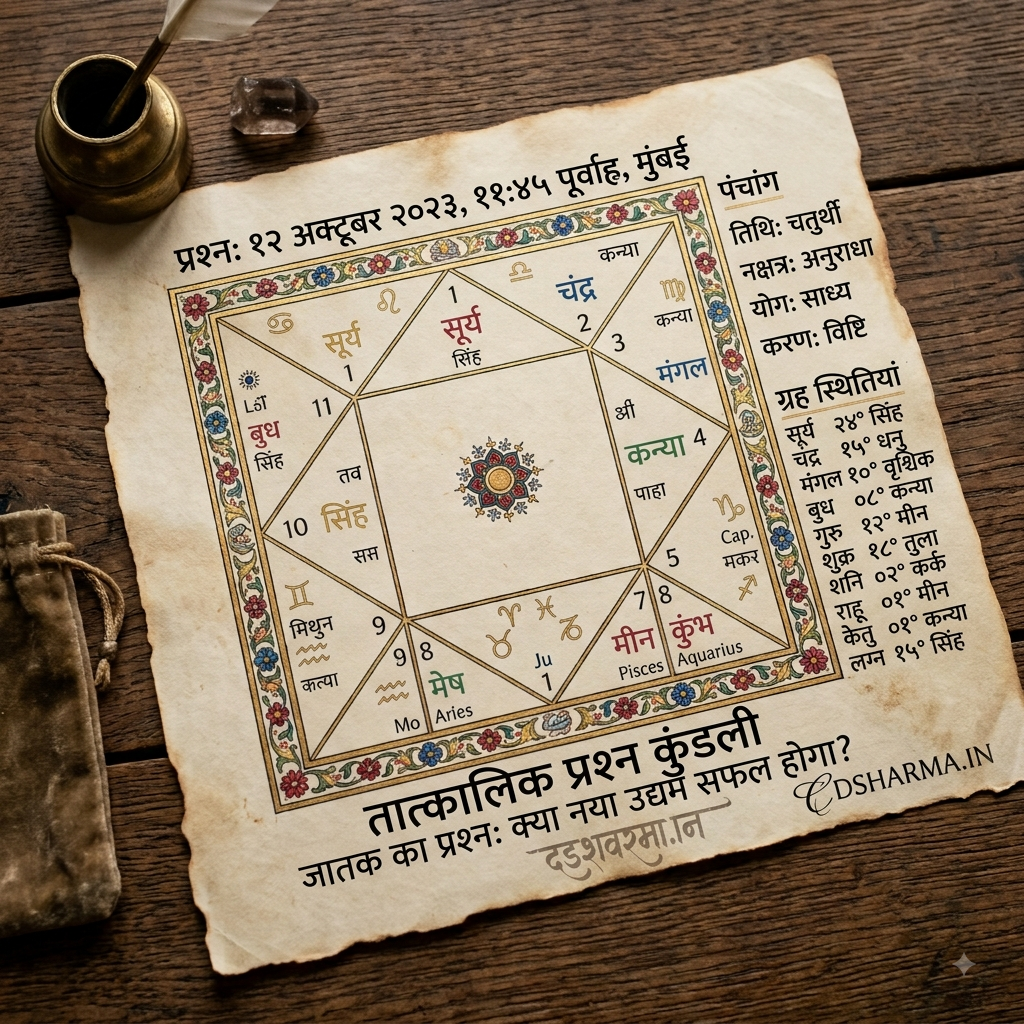 प्रश्न: १२ अक्टूबर २०२३, ११:४५ पूर्वाह्न, मुंबई
पंचांग
तिथि: चतुर्थी
नक्षत्र: अनुराधा
योग: साध्य
करण: विष्टि
ग्रह स्थितियां
सूर्य २४° सिंह
चंद्र १५° धनु
मंगल १०° वृश्चिक
बुध ०८° कन्या
गुरु १२° मीन
शुक्र १८° तुला
शनि ०२° कर्क
राहू ०१° मीन
केतु ०१° कन्या
लग्न १५° सिंह
सूर्य
1
1
सूर्य
सिंह
कन्या
चंद्र
2
3
कन्या
मंगल
11
बुध
सिंह
तव
10 सिंह
सस
कन्या 4
पाहा
5
Cap.
मकर
मिथुन
9
कत्या
9
Mo
8
मेष
Aries
Ju
1
7
मीन
Pisces
8
कुंभ
Aquarius
तात्कालिक प्रश्न कुंडली
जातक का प्रश्न: क्या नया उद्यम सफल होगा?
CDSHARMA.IN